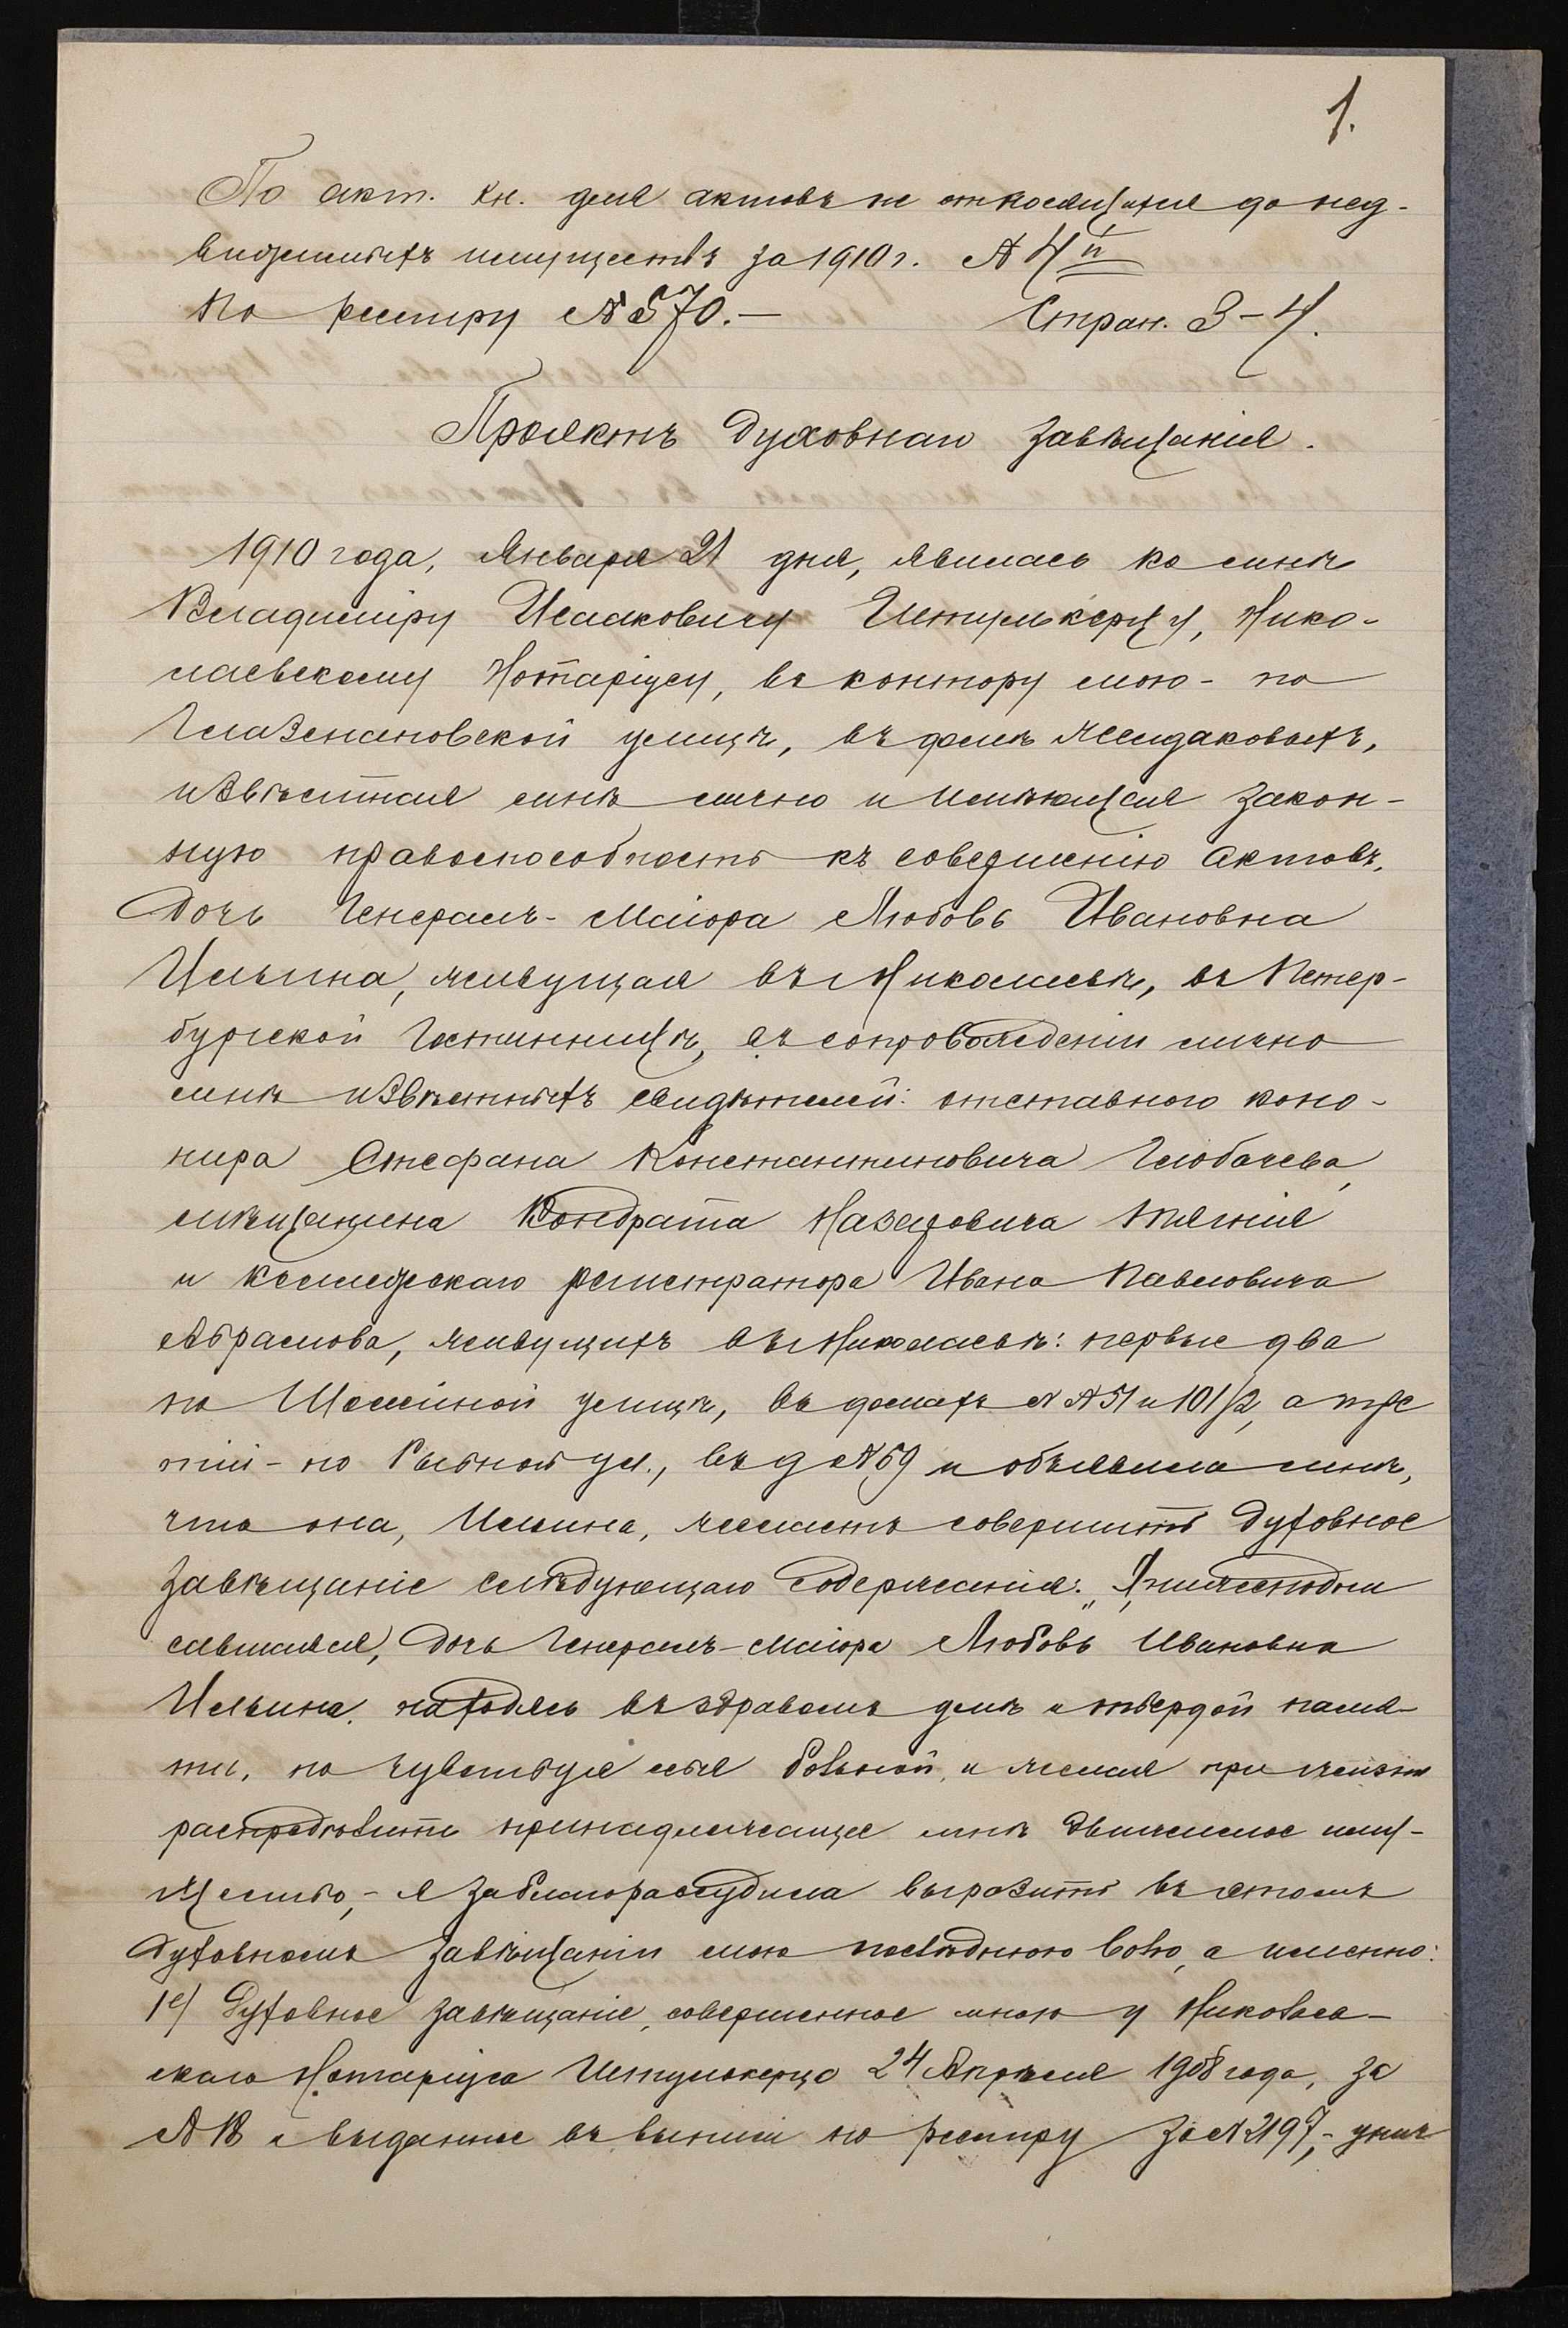 1.
По акт. кн. для актовъ не относящихся до нед-
вижимыхъ имуществъ за 1910 г. № 4й
По реестру № 570.— Стран. 3-4.
Проектъ духовнаго завѣщанія.
1910 года, Января 21 дня, явилась ко мнѣ
Владиміру Исааковичу Истулькерцу, Нико-
лаевскому Нотаріусу, въ контору мою - по
Глазенаповской улицѣ, въ домѣ
извѣстная мнѣ лично и имѣющая закон-
ную правоспособность къ совершенію актовъ,
дочь Генералъ-Маіора Любовь Ивановна
Ильина, живущая въ Николаевѣ, въ Петер-
бургской Гостинницѣ, въ сопровожденіи лично
мнѣ извѣстныхъ свидѣтелей: отставного коно-
нира Стефана Константиновича Глобачева,
мѣщанина Кондрата Назаровича
и коллежскаго регистратора Ивана Павловича
Абрамова, живущихъ въ Николаевѣ: первые два
по улицѣ, въ домахъ №№ 51 и 101/2, а тре
тій - по Рыбной ул., въ д № 59 и объявила мнѣ,
что она, Ильина, желаетъ совершить духовное
завѣщаніе слѣдующаго содержанія: „Я, нижеподпи
савшаяся, дочь Генералъ-Маіора Любовь Ивановна
Ильина, находясь въ здравомъ умѣ и твердой памя-
ти, но чувствуя себя больной, и желая при жизни
распредѣлить принадлежащее мнѣ движимое иму-
щество, - я заблагоразсудила выразить въ этомъ
духовномъ завѣщаніи мою послѣднюю волю, а именно:
1е/ Духовное завѣщаніе, совершенное мною у Николаев-
скаго Нотаріуса Истулькерца 24 Апрѣля 1908 года, за
№ 18 и выданное въ выписи по реестру за № 2197, - унич